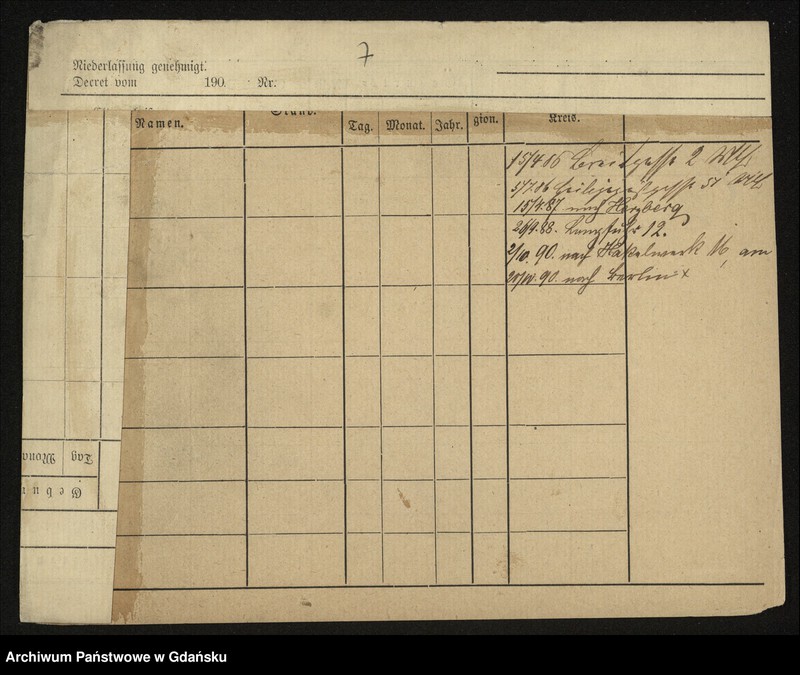 7
Niederlassung genehmigt:
Decret vom 190. Nr.
Namen. Stand. Tag. Monat. Jahr. gion. Kreis.
15/4.86 Breitgasse 2
5/7.86 Heiligegeistgasse 51
15/4.87 nach Herzberg
26/9.88. Langfuhr 12.
2/10. 90. nach Hakelwerk 16, am
20/10. 90. nach Berlin x
Tag Mona
Gebur
Archiwum Państwowe w Gdańsku